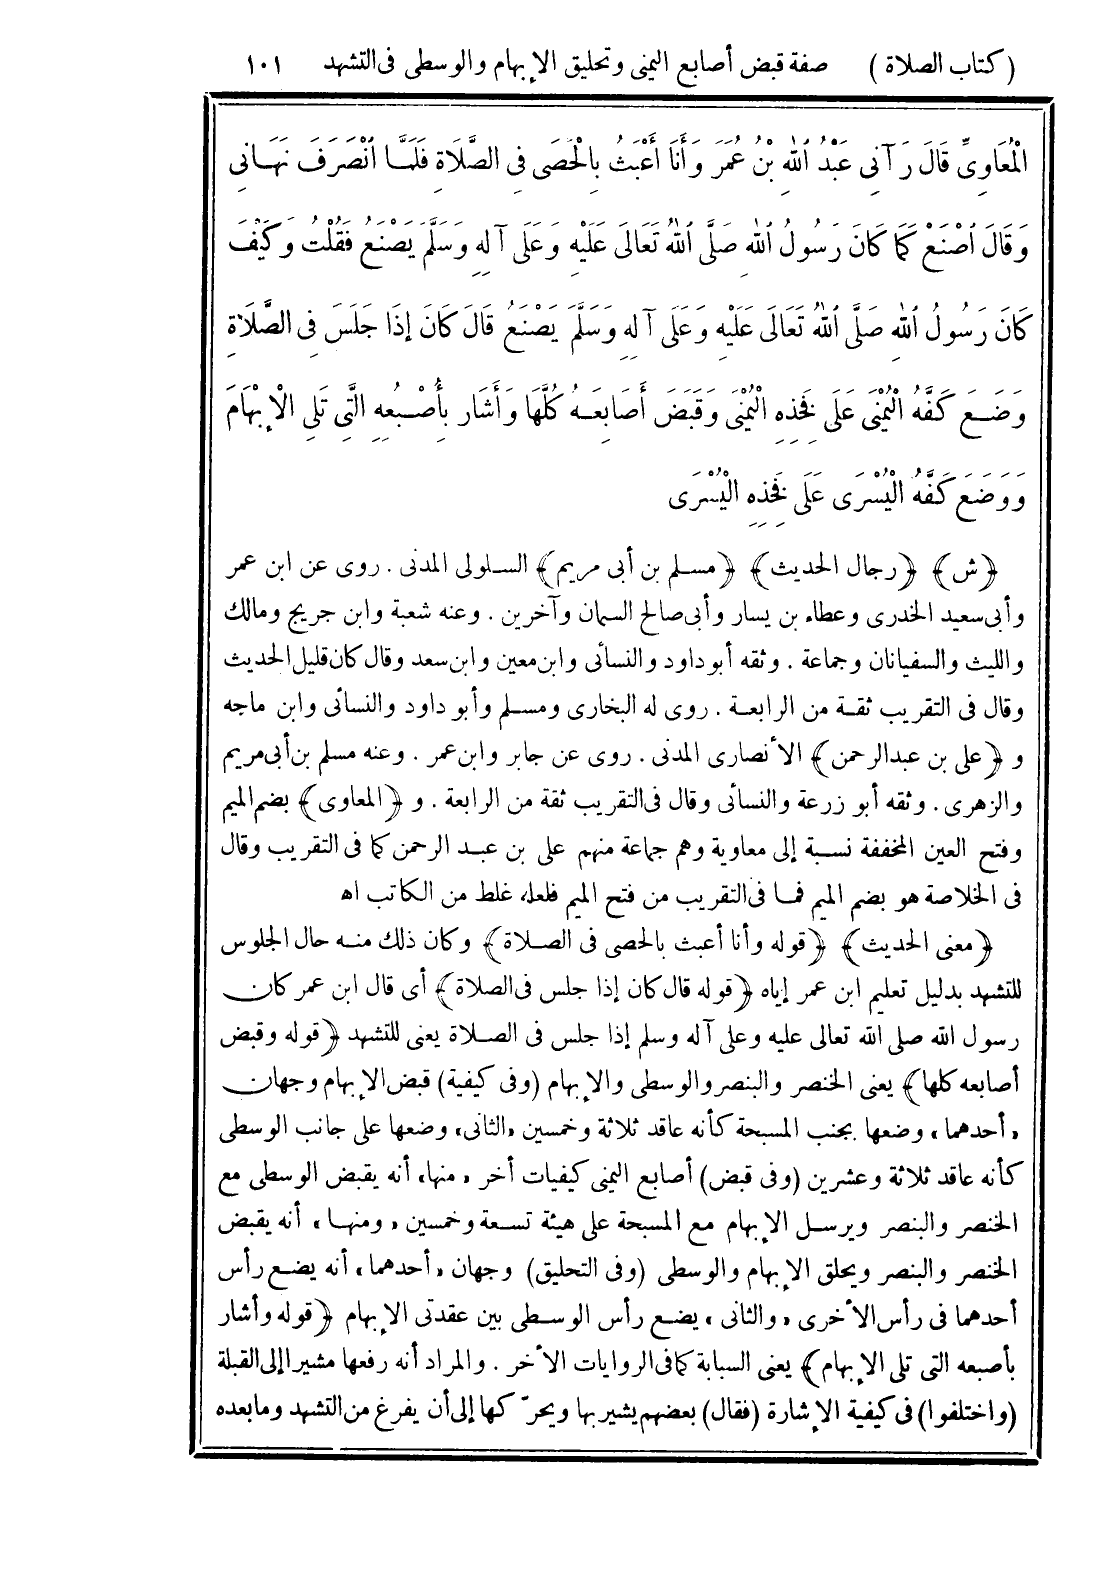 ( كتاب الصلاة ) صفة قبض أصابع اليمنى وتحليق الإبهام والوسطى فى التشهد ١٠١
الْمُعَاوِىِّ قَالَ رَآنِى عَبْدُ ٱللهِ بْنُ عُمَرَ وَأَنَا أَعْبَثُ بِالْحَصَى فِى الصَّلَاةِ فَلَمَّا ٱنْصَرَفَ نَهَانِى
وَقَالَ ٱصْنَعْ كَمَا كَانَ رَسُولُ ٱللهِ صَلَّى ٱللهُ تَعَالَى عَلَيْهِ وَعَلَى آلِهِ وَسَلَّمَ يَصْنَعُ فَقُلْتُ وَكَيْفَ
كَانَ رَسُولُ ٱللهِ صَلَّى ٱللهُ تَعَالَى عَلَيْهِ وَعَلَى آلِهِ وَسَلَّمَ يَصْنَعُ قَالَ كَانَ إِذَا جَلَسَ فِى الصَّلَاةِ
وَضَعَ كَفَّهُ الْيُمْنَى عَلَى فَخِذِهِ الْيُمْنَى وَقَبَضَ أَصَابِعَهُ كُلَّهَا وَأَشَارَ بِأُصْبُعِهِ الَّتِى تَلِى الْإِبْهَامَ
وَوَضَعَ كَفَّهُ الْيُسْرَى عَلَى فَخِذِهِ الْيُسْرَى
﴿ش﴾ ﴿رجال الحديث﴾ ﴿مسلم بن أبى مريم﴾ السلولى المدنى . روى عن ابن عمر
وأبى سعيد الخدرى وعطاء بن يسار وأبى صالح السمان وآخرين . وعنه شعبة وابن جريج ومالك
والليث والسفيانان وجماعة . وثقه أبو داود والنسائى وابن معين وابن سعد وقال كان قليل الحديث
وقال فى التقريب ثقة من الرابعة . روى له البخارى ومسلم وأبو داود والنسائى وابن ماجه
و ﴿على بن عبد الرحمن﴾ الأنصارى المدنى . روى عن جابر وابن عمر . وعنه مسلم بن أبى مريم
والزهرى . وثقه أبو زرعة والنسائى وقال فى التقريب ثقة من الرابعة . و ﴿المعاوى﴾ بضم الميم
وفتح العين المخففة نسبة إلى معاوية وهم جماعة منهم على بن عبد الرحمن كما فى التقريب وقال
فى الخلاصة هو بضم الميم فما فى التقريب من فتح الميم فلعله غلط من الكاتب اه
﴿معنى الحديث﴾ ﴿قوله وأنا أعبث بالحصى فى الصلاة﴾ وكان ذلك منه حال الجلوس
للتشهد بدليل تعليم ابن عمر إياه ﴿قوله قال كان إذا جلس فى الصلاة﴾ أى قال ابن عمر كان
رسول الله صلى الله تعالى عليه وعلى آله وسلم إذا جلس فى الصلاة يعنى للتشهد ﴿قوله وقبض
أصابعه كلها﴾ يعنى الخنصر والبنصر والوسطى والإبهام (وفى كيفية) قبض الإبهام وجهان
«أحدهما» وضعها بجنب المسبحة كأنه عاقد ثلاثة وخمسين «الثانى» وضعها على جانب الوسطى
كأنه عاقد ثلاثة وعشرين (وفى قبض) أصابع اليمنى كيفيات أخر «منها» أنه يقبض الوسطى مع
الخنصر والبنصر ويرسل الإبهام مع المسبحة على هيئة تسعة وخمسين «ومنها» أنه يقبض
الخنصر والبنصر ويحلق الإبهام والوسطى (وفى التحليق) وجهان «أحدهما» أنه يضع رأس
أحدهما فى رأس الأخرى «والثانى» يضع رأس الوسطى بين عقدتى الإبهام ﴿قوله وأشار
بأصبعه التى تلى الإبهام﴾ يعنى السبابة كما فى الروايات الأخر . والمراد أنه رفعها مشيرا إلى القبلة
(واختلفوا) فى كيفية الإشارة (فقال) بعضهم يشير بها ويحرّكها إلى أن يفرغ من التشهد وما بعده